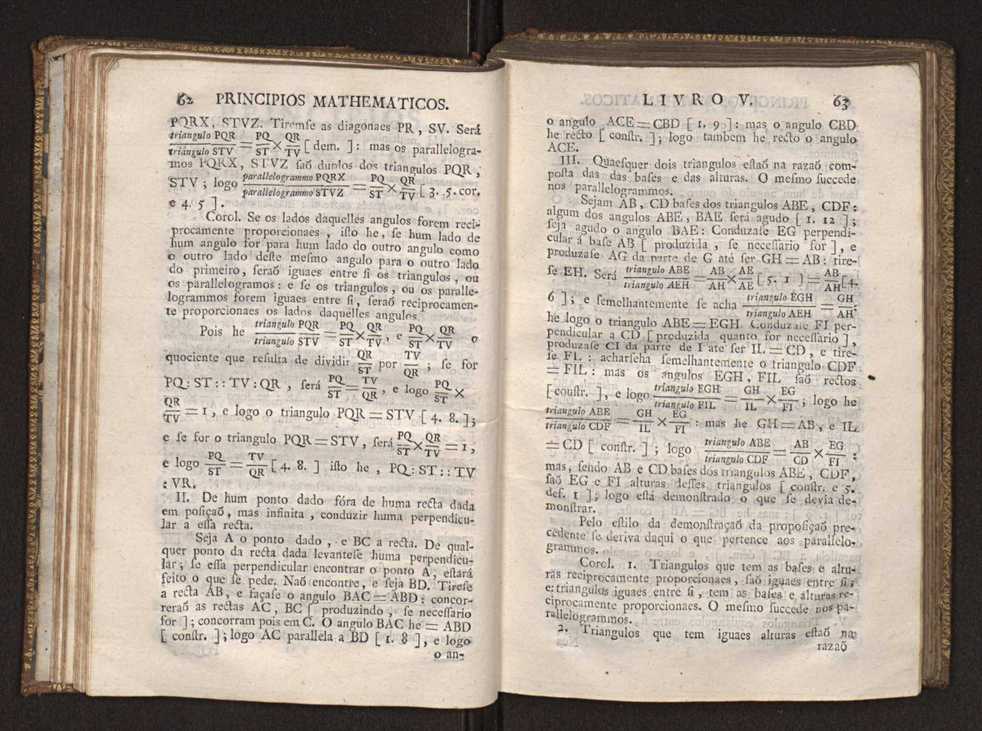 62 PRINCIPIOS MATHEMATICOS.
PQRX, STVZ. Tiremse as diagonaes PR, SV. Será
triangulo PQR / triangulo STV = PQ/ST × QR/TV [ dem. ]: mas os parallelogra-
mos PQRX, STVZ saõ duplos dos triangulos PQR,
STV; logo parallelogrammo PQRX / parallelogrammo STVZ = PQ/ST × QR/TV [ 3. 5. cor.
e 4. 5 ].
Corol. Se os lados daquelles angulos forem reci-
procamente proporcionaes, isto he, se hum lado de
hum angulo for para hum lado do outro angulo como
o outro lado deste mesmo angulo para o outro lado
do primeiro, seraõ iguaes entre si os triangulos, ou
os parallelogramos: e se os triangulos, ou os paralle-
logrammos forem iguaes entre si, seraõ reciprocamen-
te proporcionaes os lados daquelles angulos.
Pois he triangulo PQR / triangulo STV = PQ/ST × QR/TV, e PQ/ST × QR/TV o
quociente que resulta de dividir QR/ST por TV/QR; se for
PQ:ST::TV:QR, será PQ/ST = TV/QR, e logo PQ/ST ×
QR/TV = 1, e logo o triangulo PQR = STV [ 4. 8. ];
e se for o triangulo PQR = STV, será PQ/ST × QR/TV = 1,
e logo PQ/ST = TV/QR [ 4. 8. ] isto he, PQ:ST::TV
:VR.
II. De hum ponto dado fóra de huma recta dada
em posiçaõ, mas infinita, conduzir huma perpendicu-
lar a essa recta.
Seja A o ponto dado, e BC a recta. De qual-
quer ponto da recta dada levantese huma perpendicu-
lar; se essa perpendicular encontrar o ponto A, estará
feito o que se pede. Naõ encontre, e seja BD. Tirese
a recta AB, e façase o angulo BAC = ABD: concor-
reraõ as rectas AC, BC [ produzindo, se necessario
for ]; concorram pois em C. O angulo BAC he = ABD
[ constr. ]; logo AC parallela a BD [ 1. 8 ], e logo
o an-
LIVRO V. 63
o angulo ACE = CBD [ 1. 9 ]: mas o angulo CBD
he recto [ constr. ]; logo tambem he recto o angulo
ACE.
III. Quaesquer dois triangulos estaõ na razaõ com-
posta das das bases e das alturas. O mesmo succede
nos parallelogrammos.
Sejam AB, CD bases dos triangulos ABE, CDF:
algum dos angulos ABE, BAE será agudo [ 1. 12 ];
seja agudo o angulo BAE: Conduzase EG perpendi-
cular á base AB [ produzida, se necessario for ], e
produzase AG da parte de G até ser GH = AB: tire-
se EH. Será triangulo ABE / triangulo AEH = AB/AH × AE/AE [ 5. 1 ] = AB/AH [ 4.
6 ]; e semelhantemente se acha triangulo EGH / triangulo AEH = GH/AH:
he logo o triangulo ABE = EGH. Conduzase FI per-
pendicular a CD [ produzida quanto for necessario ],
produzase CI da parte de I até ser IL = CD, e tire-
se FL: acharseha semelhantemente o triangulo CDF
= FIL: mas os angulos EGH, FIL saõ rectos
[ constr. ], e logo triangulo EGH / triangulo FIL = GH/IL × EG/FI; logo he
triangulo ABE / triangulo CDF = GH/IL × EG/FI: mas he GH = AB, e IL
= CD [ constr. ]; logo triangulo ABE / triangulo CDF = AB/CD × EG/FI:
mas, sendo AB e CD bases dos triangulos ABE, CDF,
saõ EG e FI alturas desses triangulos [ constr. e 5.
def. 1 ]; logo está demonstrado o que se devia de-
monstrar.
Pelo estilo da demonstraçaõ da proposiçaõ pre-
cedente se deriva daqui o que pertence aos parallelo-
grammos.
Corol. 1. Triangulos que tem as bases e altu-
ras reciprocamente proporcionaes, saõ iguaes entre si;
e triangulos iguaes entre si, tem as bases e alturas re-
ciprocamente proporcionaes. O mesmo succede nos pa-
rallelogrammos.
2. Triangulos que tem iguaes alturas estaõ na
razaõ